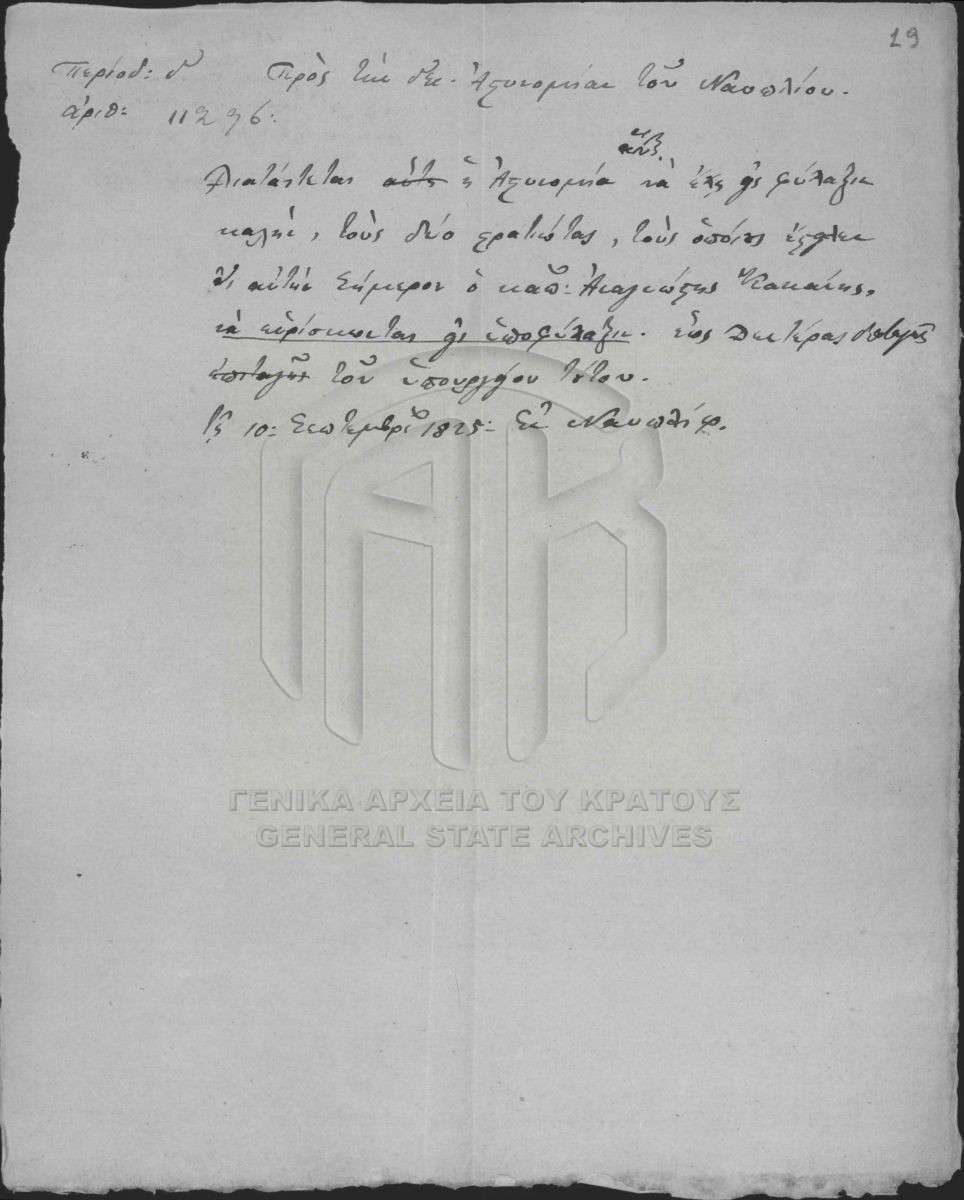 19
Περίοδ: δ' Πρὸς τὴν Ἀστυνομίαν τοῦ Ναυπλίου.
ἀριθ: 11296:
Διατάττεται αὕτη ἡ Ἀστυνομία νὰ ἔχῃ εἰς φύλαξιν
καλὴν, τοὺς δύο στρατιώτας, τοὺς ὁποίους ἔστειλεν
εἰς αὐτὴν σήμερον ὁ καπ: Ἀναγνώστης
νὰ εὑρίσκωνται εἰς ὑποφύλαξιν. ἕως δευτέρας διαταγῆς
ἐπιταγῆς τοῦ ὑπουργείου τούτου.
τῇ 10: Σεπτεμβρίου 1825: Ἐν Ναυπλίῳ.
ΓΕΝΙΚΑ ΑΡΧΕΙΑ ΤΟΥ ΚΡΑΤΟΥΣ
GENERAL STATE ARCHIVES